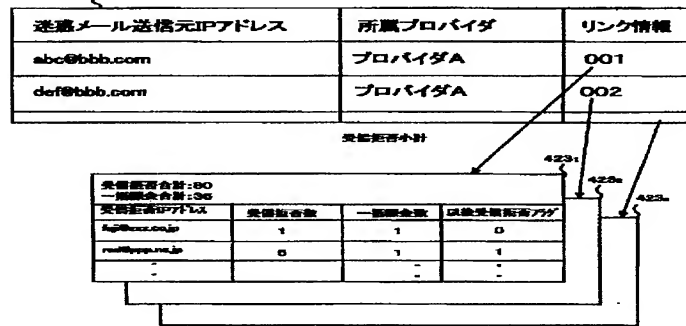 迷惑メール送信元IPアドレス 所属プロバイダ リンク情報
abc@bbb.com プロバイダA 001
def@bbb.com プロバイダA 002
受信拒否小計
423₁
423₂
423ₙ
受信拒否合計:80
一括課金合計:36
受信拒否IPアドレス 受信拒否数 一括課金数 以後受信拒否フラグ
1 1 0
5 1 1